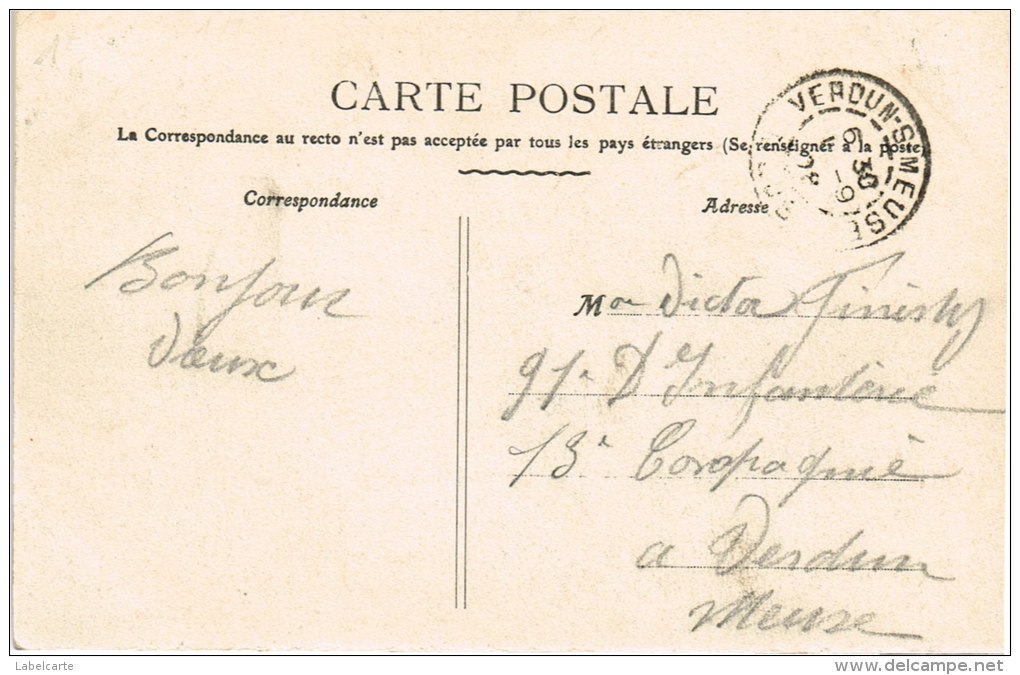 CARTE POSTALE
La Correspondance au recto n'est pas acceptée par tous les pays étrangers (Se renseigner à la poste)
VERDUN-S-MEUSE
6 30
Correspondance
Adresse
Bonjour
M
91e D'Infanterie
13e Compagnie
a Verdun
Meuse
Labelcarte
www.delcampe.net